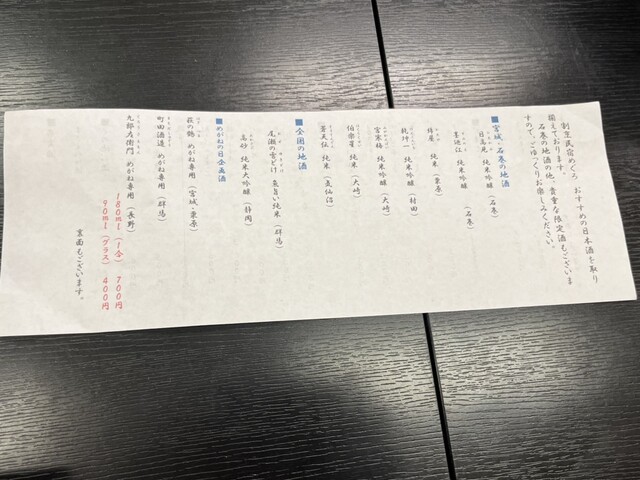 割烹民宿めぐろ　おすすめの日本酒を取り
揃えております。
石巻の地酒の他、貴重な限定酒もございま
すので、ごゆっくりお楽しみください。
■宮城・石巻の地酒
日高見　純米吟醸（石巻）
墨廼江　純米吟醸（石巻）
綿屋　純米（栗原）
乾坤一　純米吟醸（村田）
宮寒梅　純米吟醸（大崎）
伯楽星　純米（大崎）
蒼天伝　純米（気仙沼）
■全国の地酒
尾瀬の雪どけ　旨い純米（群馬）
高砂　純米大吟醸（静岡）
■めがねの日企画酒
萩の鶴　めがね専用（宮城、栗原）
町田酒造　めがね専用（群馬）
九郎右衛門　めがね専用（長野）
180ml（1合）　700円
90ml（グラス）　400円
裏面もございます。